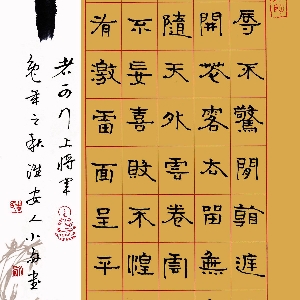 辱不驚閒看庭
開花落去留無
隨天外雲卷雲
不妄喜敗不惶
有激雷面呈平
者可拜上將軍
兔年之秋淮安人小舟書